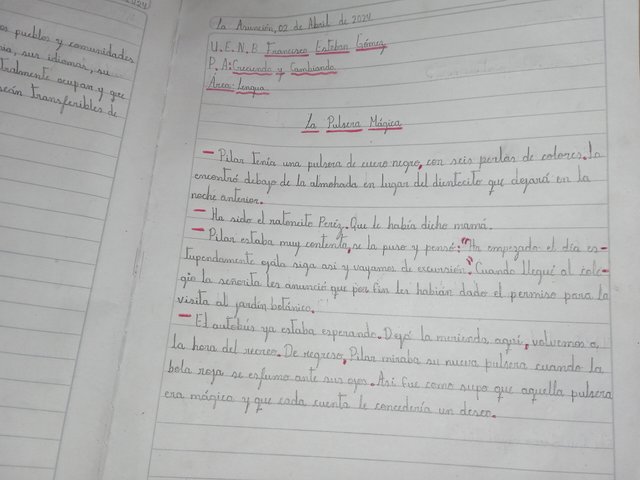 os pueblos y comunidades
ia, sus idiomas, su
tralmente ocupan y que
seán transferibles de
La Asunción, 02 de Abril de 2024
U.E.N.B Francisco Esteban Gómez
P.A: Creciendo y Cambiando
Área: Lengua
La Pulsera Mágica
– Pilar tenía una pulsera de cuero negro, con seis perlas de colores. La
encontró debajo de la almohada en lugar del dientecito que dejará en la
noche anterior.
– Ha sido el ratoncito Peréz. Que le había dicho mamá.
– Pilar estaba muy contenta, se la puso y pensó: "Ha empezado el día es-
tupendamente ojala siga así y vayamos de excursión." Cuando llegué al cole-
gio la señorita les anunció que por fin les habían dado el permiso para la
visita al jardín botánico.
– El autobús ya estaba esperando. Dejá la merienda, aquí, volvemos a
la hora del recreo. De regreso, Pilar miraba su nueva pulsera cuando la
bola roja se esfumo ante sus ojos. Así fue como supo que aquella pulsera
era mágica y que cada cuenta le concedería un deseo.